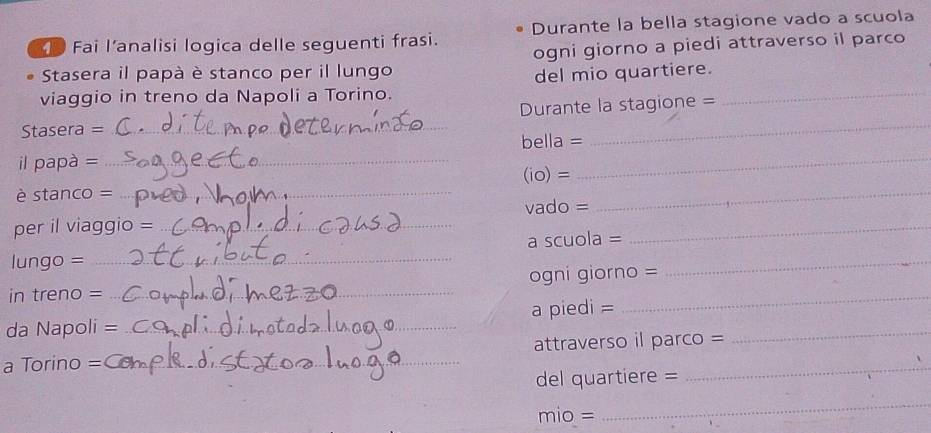 1 Fai l'analisi logica delle seguenti frasi.
• Stasera il papà è stanco per il lungo
viaggio in treno da Napoli a Torino.
Stasera = C. di tempo determinato
il papà = soggetto
è stanco = pred. nom.
per il viaggio = compl. di causa
lungo = attributo
in treno = compl. di mezzo
da Napoli = compl. di moto da luogo
a Torino = comple. di stato a luogo
• Durante la bella stagione vado a scuola
ogni giorno a piedi attraverso il parco
del mio quartiere.
Durante la stagione =
bella =
(io) =
vado =
a scuola =
ogni giorno =
a piedi =
attraverso il parco =
del quartiere =
mio =